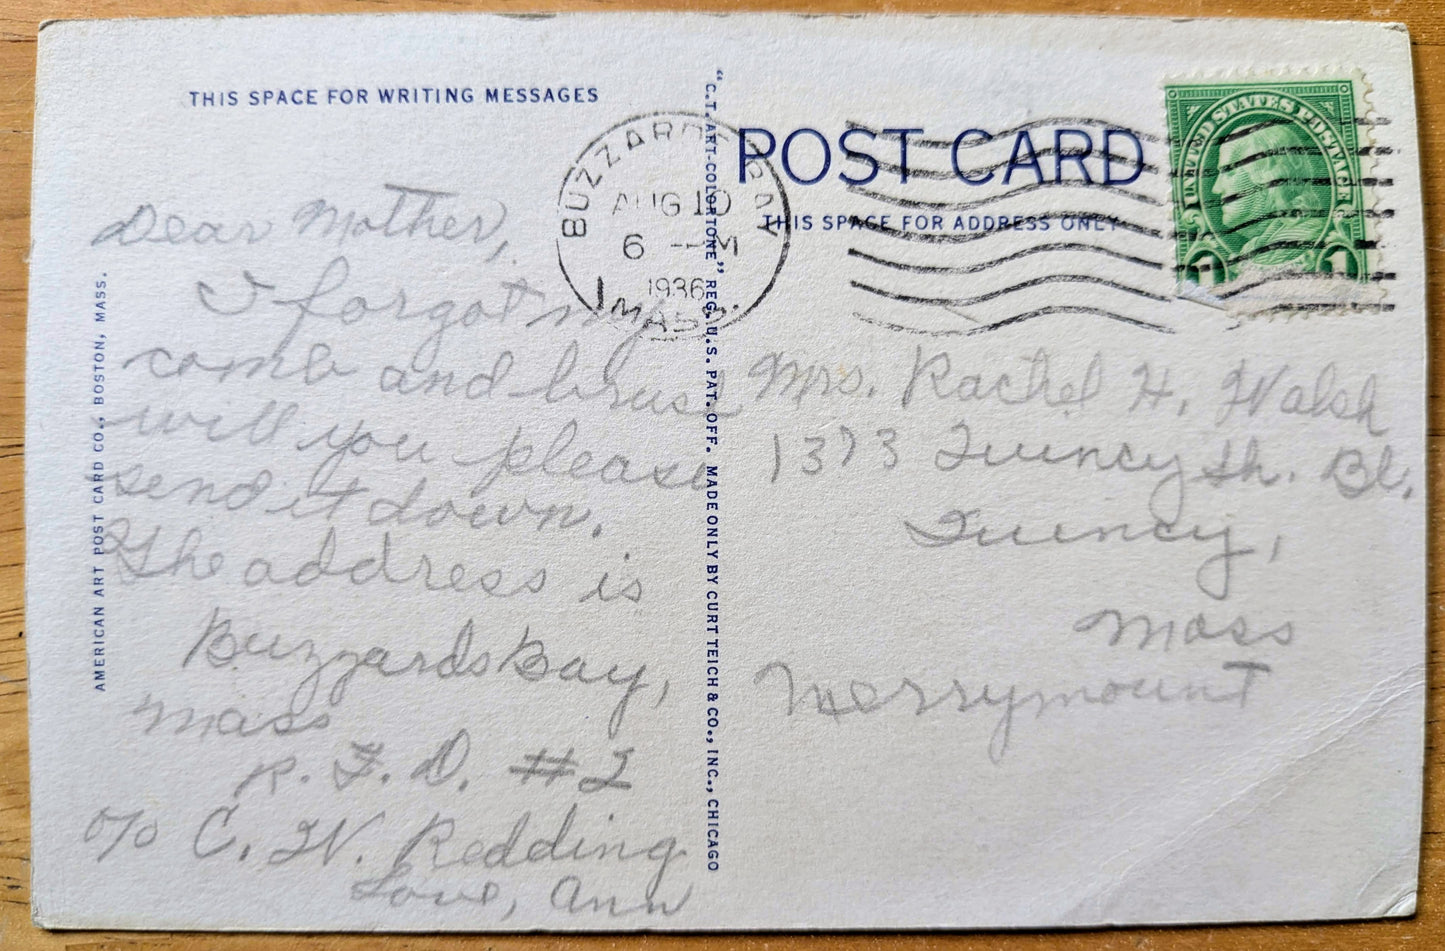 THIS SPACE FOR WRITING MESSAGES
Dear Mother,
I forgot my
comb and brush
will you please
send it down.
The address is
Buzzards Bay,
Mass
R. F. D. #2
c/o C. W. Redding
Love, Ann
AMERICAN ART POST CARD CO., BOSTON, MASS.
"C.T. ART-COLORTONE" REG. U.S. PAT. OFF. MADE ONLY BY CURT TEICH & CO., INC., CHICAGO
BUZZARDS BAY
AUG 10
6 — M
1936
MASS.
POST CARD
THIS SPACE FOR ADDRESS ONLY
UNITED STATES POSTAGE
1
Mrs. Rachel H. Walsh
1373 Quincy Sh. Bl.
Quincy,
Mass
Merrymount